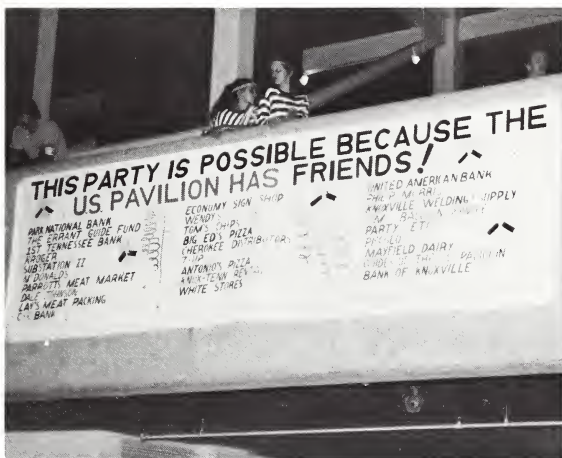 THIS PARTY IS POSSIBLE BECAUSE THE
U.S. PAVILION HAS FRIENDS!
PARK NATIONAL BANK
THE ERRANT GUIDE FUND
1ST TENNESSEE BANK
KROGER
SUBSTATION II
McDONALDS
PARROTTS MEAT MARKET
DALE JOHNSON
LAY'S MEAT PACKING
BANK
ECONOMY SIGN SHOP
WENDYS
TOM'S CHIPS
BIG ED'S PIZZA
CHEROKEE DISTRIBUTORS
7-UP
ANTONIO'S PIZZA
KNOX-TENN RENTAL
WHITE STORES
UNITED AMERICAN BANK
PHILIP MORRIS
KNOXVILLE WELDING SUPPLY
PARTY ETC
MAYFIELD DAIRY
BANK OF KNOXVILLE